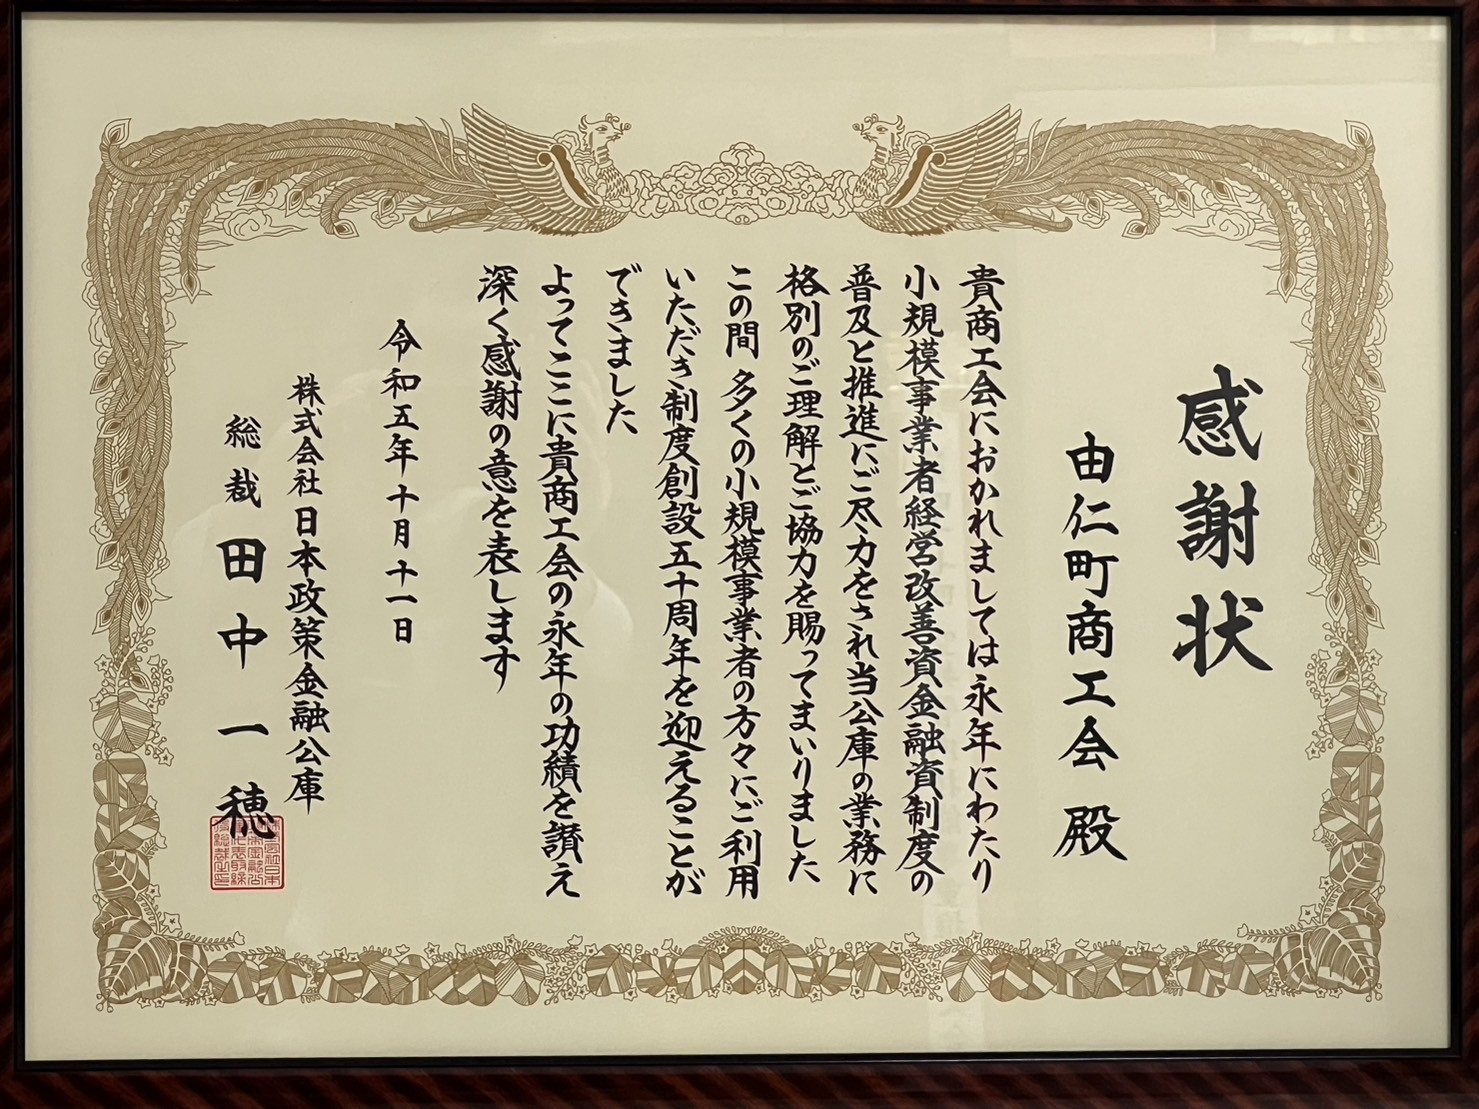 感謝状
由仁町商工会 殿
貴商工会におかれましては永年にわたり
小規模事業者経営改善資金融資制度の
普及と推進にご尽力をされ当公庫の業務に
格別のご理解とご協力を賜ってまいりました
この間 多くの小規模事業者の方々にご利用
いただき制度創設五十周年を迎えることが
できました
よってここに貴商工会の永年の功績を讃え
深く感謝の意を表します
令和五年十月十一日
株式会社日本政策金融公庫
総裁 田中一穂